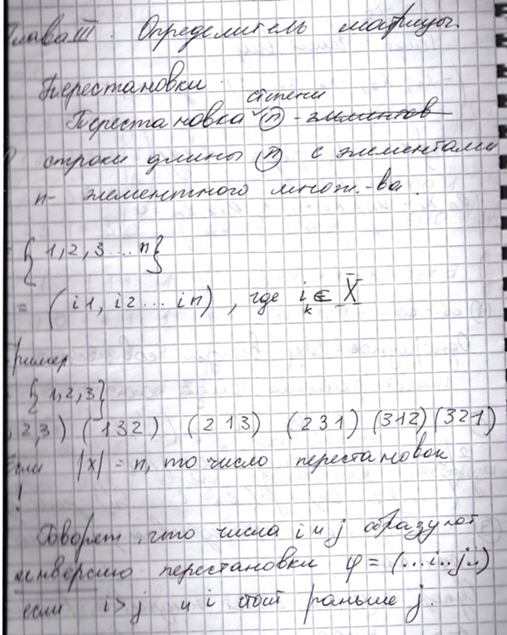 Глава III. Определитель матрицы.
Перестановки.
степени
Перестановка (n) - элементов
строки длины (n) с элементами
n - элементного множ.-ва.
{1,2,3...n}
= (i1, i2... in), где i_k ∈ X
Пример
{1,2,3}
,2,3) (132) (213) (231) (312) (321)
Если |x| = n, то число перестановок
!
Говорят, что числа i и j образуют
инверсию перестановки φ = (...i..j..)
если i>j и i стоит раньше j.